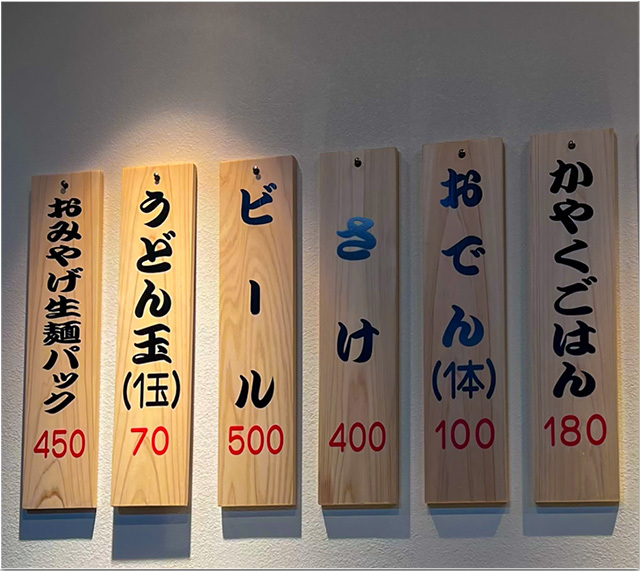 かやくごはん
180
おでん
(1体)
100
さけ
400
ビール
500
うどん玉
(1玉)
70
おみやげ生麺パック
450